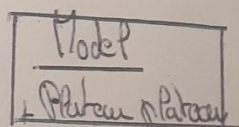 Model
Plateau nPlateau